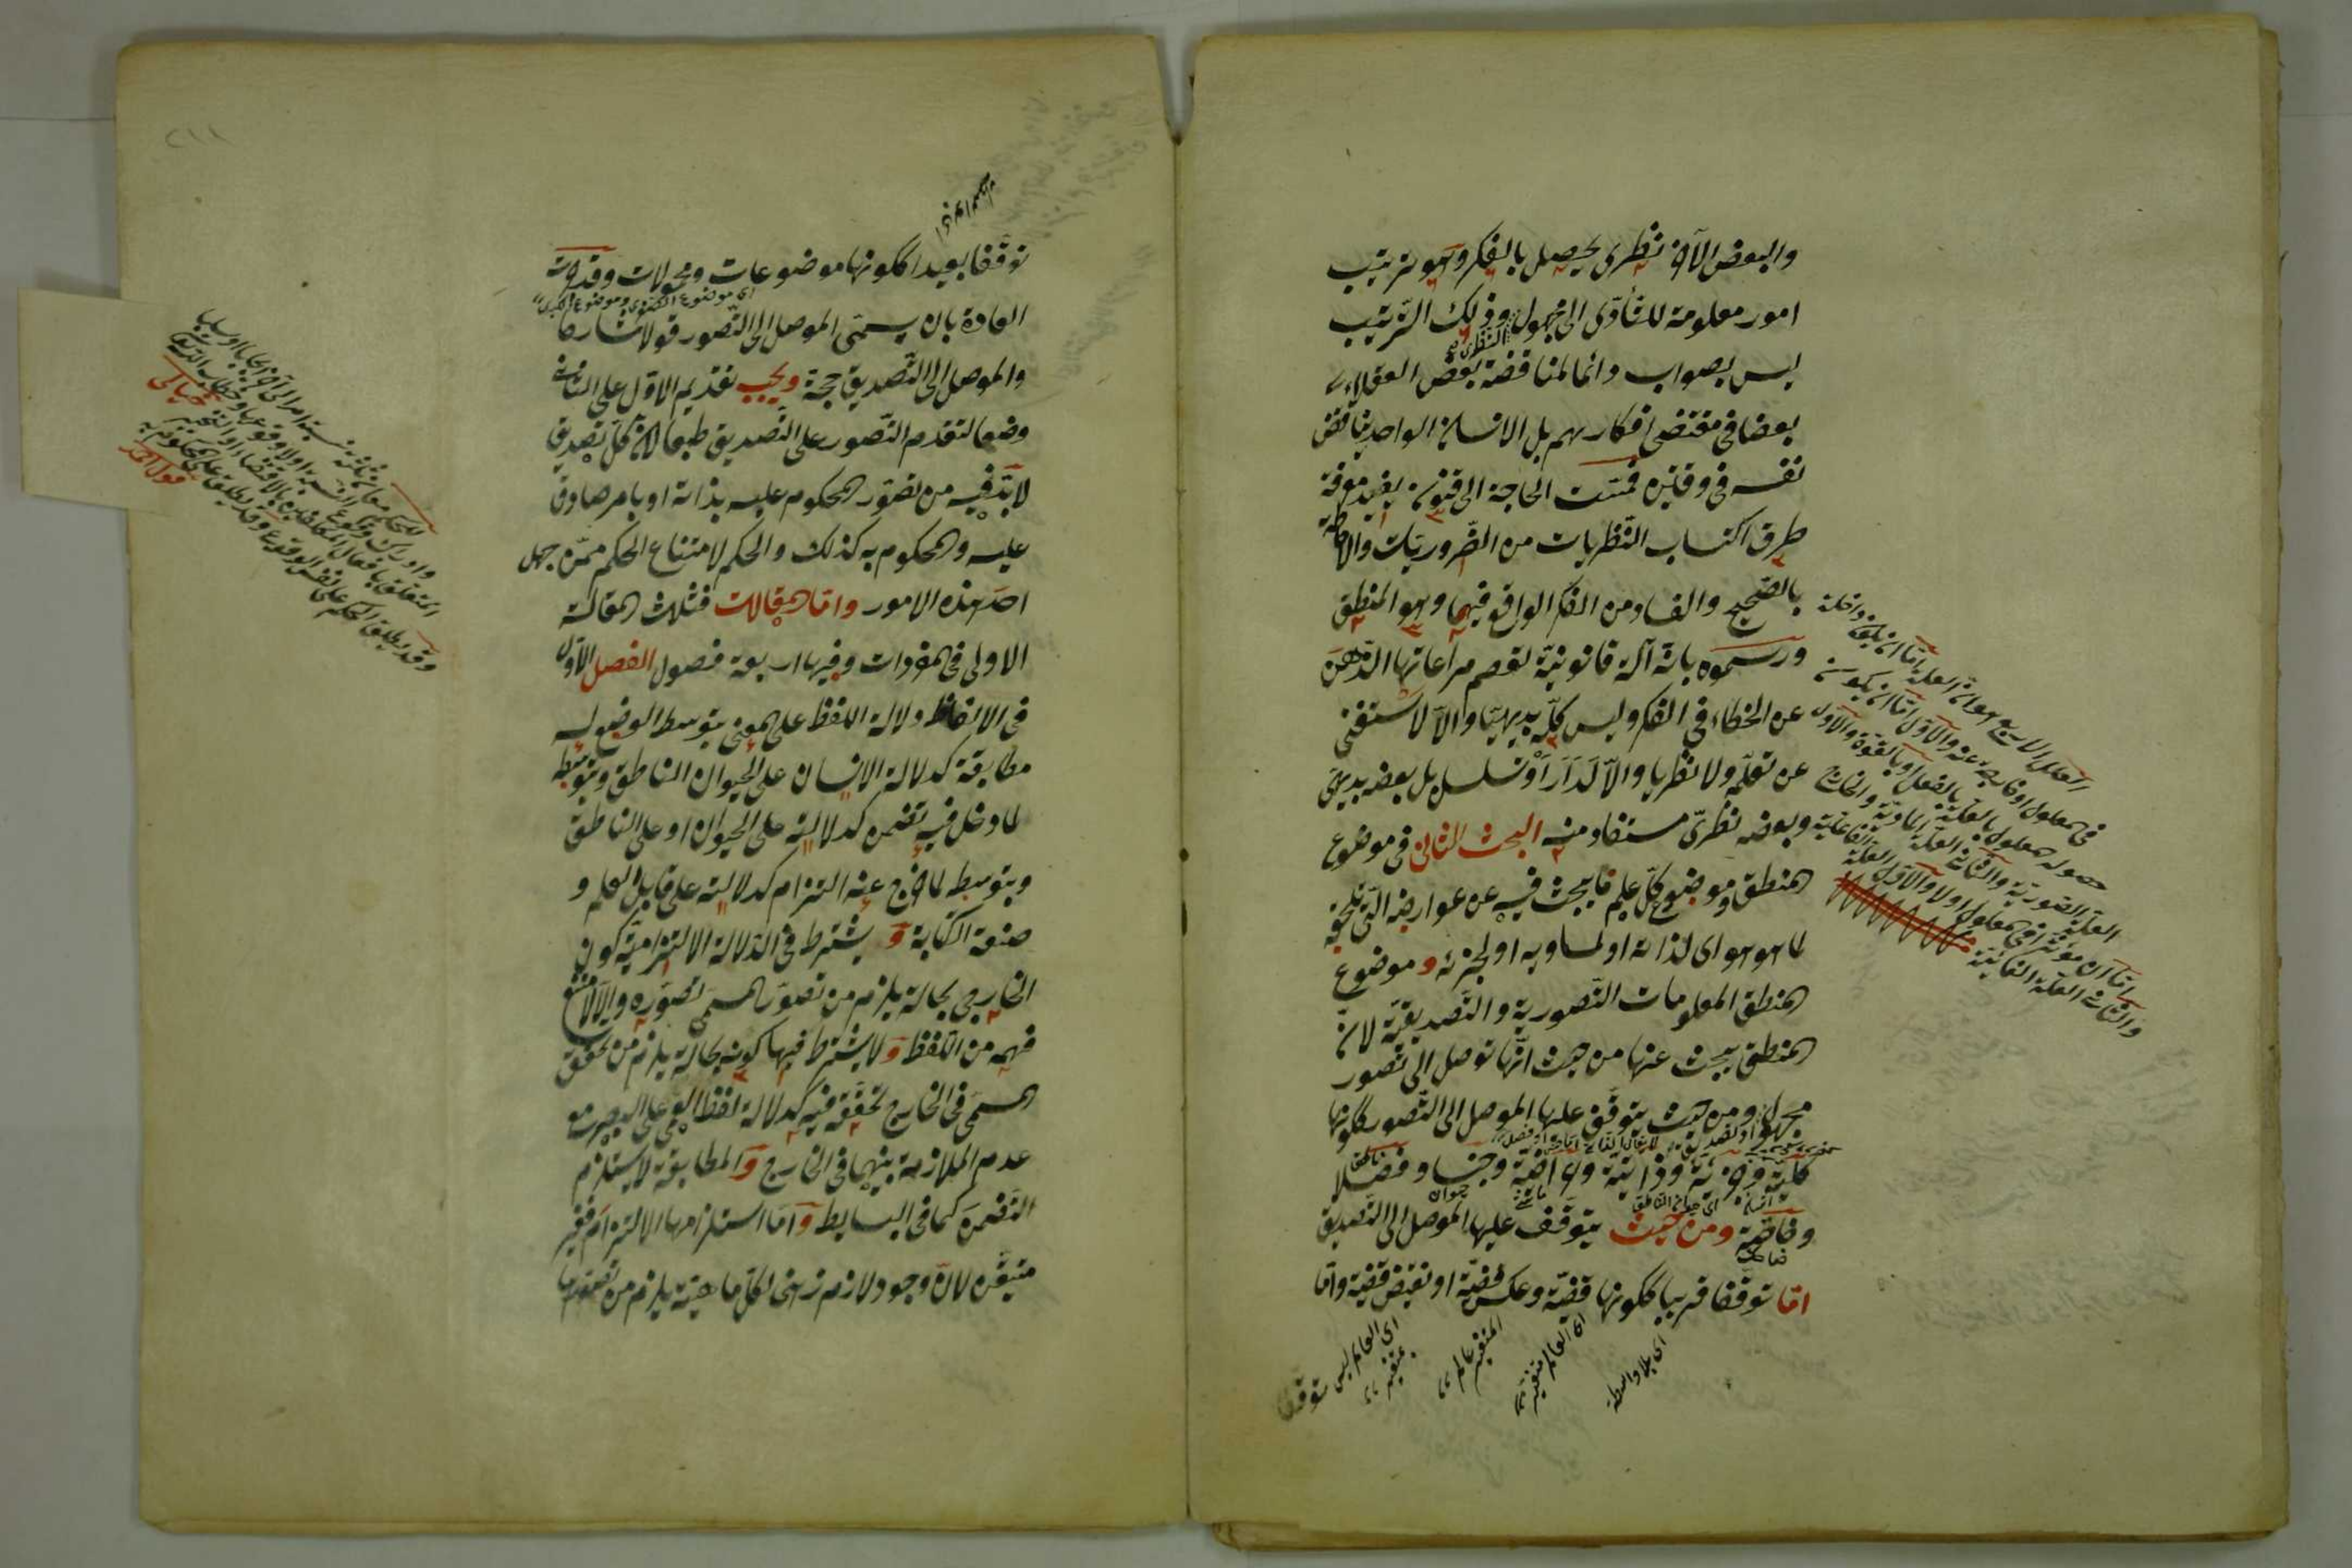 والبعض الآخر نظرى يحصل بالفكر وهو ترتيب
امور معلومة للتأدى الى مجهول وذلك الترتيب
ليس بصواب دائما لمناقضة بعض العقلاء
بعضا فى مقتضى افكارهم بل الانسان الواحد يناقض
نفسه فى وقتين فمست الحاجة الى قانون يفيد معرفة
طرق اكتساب النظريات من الضروريات والاحاطة
بالصحيح والفاسد من الفكر الواقع فيها وهو المنطق
ورسموه بانه آلة قانونية تعصم مراعاتها الذهن
عن الخطاء فى الفكر وليس كله بديهيا والا لاستغنى
عن تعلمه ولا نظريا والا لدار او تسلسل بل بعضه بديهى
وبعضه نظرى مستفاد منه البحث الثانى فى موضوع
المنطق موضوع كل علم ما يبحث فيه عن عوارضه التى تلحقه
لما هو هو اى لذاته او لما يساويه او لجزئه وموضوع
المنطق المعلومات التصورية والتصديقية لان
المنطقى يبحث عنها من حيث انها توصل الى تصور
مجهول او تصديق ومن حيث يتوقف عليها الموصل الى التصور ككونها
كلية وجزئية وذاتية وعرضية وجنسا وفصلا
وخاصة ومن حيث يتوقف عليها الموصل الى التصديق
اما توقفا قريبا ككونها قضية وعكس قضية او نقيض قضية واما
اى بلا واسطة
اى العالم متغير
المتغير عالم
اى العالم ليس بمتغير
توقفا
العلل الاربع هو ان العلة اما ان يكون داخلة
فى المعلول او خارجة عنه والاول اما ان يكون
حصول المعلول بالعلة بالفعل او بالقوة والاول
العلة الصورية والثانى العلة المادية والخارج
اما ان مؤثرا فى المعلول اولا والاول العلة الفاعلية
والثانى العلة الغائية
توقفا بعيدا ككونها موضوعات ومحمولات وقد جرت
اى موضوع الصغرى وموضوع الكبرى
العادة بان يسمى الموصل الى التصور قولا شارحا
والموصل الى التصديق حجة ويجب تقديم الاول على الثانى
وضعا لتقدم التصور على التصديق طبعا لان كل تصديق
لا بد فيه من تصور المحكوم عليه بذاته او بامر صادق
عليه والمحكوم به كذلك والحكم لامتناع الحكم ممن جهل
احد هذه الامور واما المقالات فثلث المقالة
الاولى فى المفردات وفيها اربعة فصول الفصل الاول
فى الالفاظ دلالة اللفظ على المعنى بتوسط الوضع له
مطابقة كدلالة الانسان على الحيوان الناطق وبتوسطه
لما دخل فيه تضمن كدلالته على الحيوان او على الناطق
وبتوسطه لما خرج عنه التزام كدلالته على قابل العلم و
صنعة الكتابة و يشترط فى الدلالة الالتزامية كون
الخارجى بحالة يلزم من تصور المسمى تصوره والا لامتنع
فهمه من اللفظ و لا يشترط فيها كونه بحالة يلزم من تحقق
المسمى فى الخارج تحققه فيه كدلالة لفظ العمى على البصر مع
عدم الملازمة بينهما فى الخارج والمطابقة لا يستلزم
التضمن كما فى البسايط واما استلزامها الالتزام فغير
متيقن لان وجود لازم ذهنى لكل ماهية يلزم من تصورها